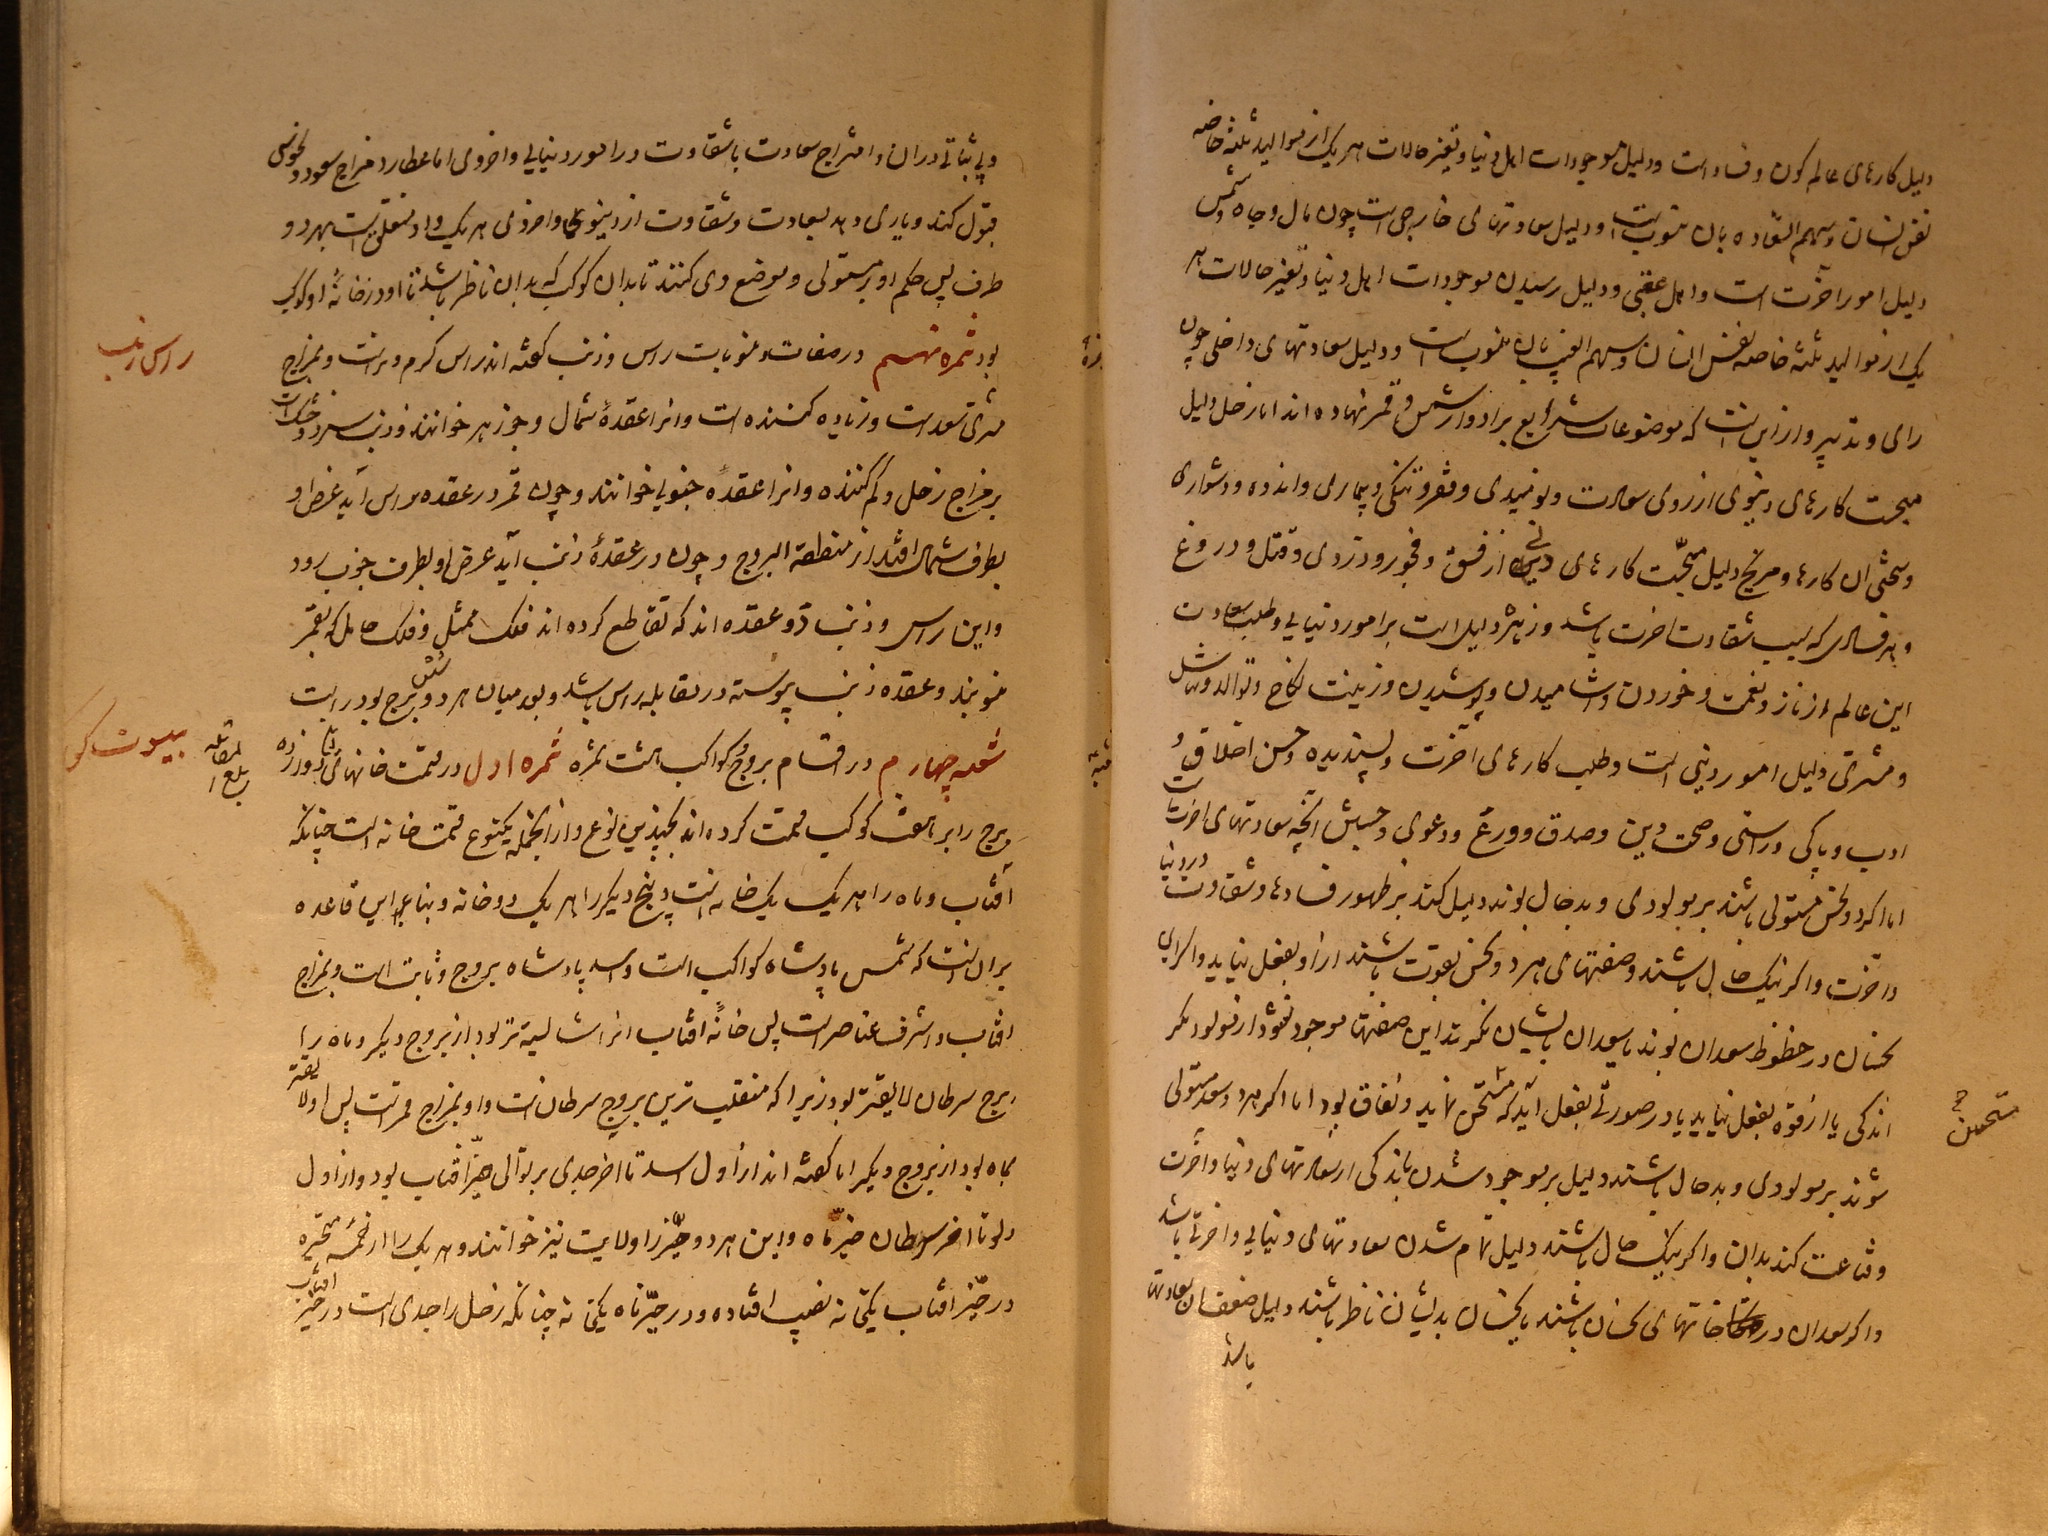 دلیل کارهای عالم کون و فساد است و دلیل موجودات اهل دنیا و تغیر حالات هر یک از موالید ثلثه خاصه
نفس انسان و سهم السعاده بان منسوبست و دلیل سعادتهای خارجی است چون مال و جاه و شمس
دلیل امور آخرت است و اهل عقبی و دلیل رسیدن موجودات اهل دنیا و تغیر حالات هر
یک از موالید ثلثه خاصه نفس انسان و سهم الغیب بان منسوب است و دلیل سعادتهای داخلی چون
رای و تدبیر و از این است که موضوعات شرایع بر ادوار شمس و قمر نهاده اند اما زحل دلیل
کارهای دنیوی از روی سوالات و نومیدی و فرومایگی و بیماری و اندوه و دشواری
و سختی ان کارها و مریخ دلیل کارهای دینی از فسق و فجور و دزدی و قتل و دروغ
و هر فسادی که سبب شقاوت اخرت باشد و زهره دلیل است بر امور دنیایی و طلب سعادت
این عالم از ناز و نعمت و خوردن و اشامیدن و پوشیدن و زینت نکاح و توالد و تناسل
و مشتری دلیل امور دینی است و طلب کارهای آخرت و پسندیده و حسن اخلاق و
ادب و پاکی و راستی و صحت دین و صدق و ورع و دعوی و جنبش آنچه سعادتهای اخرتست
اما اگر دو نحس مستولی باشند بر مولودی و بدحال بوند دلیل کند بر ظهور فسادها و شقاوت در دنیا
و آخرت و اگر نیک حال باشند و صفتهای هر دو نحس بقوت باشند از او بفعل نیاید و اگر این
نحسان در حظوظ سعدان بوند یا سعدان بایشان نگرند این صفتها موجود نشود از مولود مگر
اندکی یا از قوه بفعل نیاید یا در صورتی بفعل آید که مستحسن نماید و نفاق بود اما اگر هر دو سعد مستولی
شوند بر مولودی و بد حال باشند دلیل بر موجود شدن باندکی از سعادتهای دنیا و آخرت
و قناعت کند بدان و اگر نیک حال باشند دلیل تمام شدن سعادتهای دنیایی و اخرتی باشد
و اگر سعدان در خانهای نحسان باشند یا نحسان بدیشان ناظر باشند دلیل ضعف ان سعادتها
باشد
مستحسن
و بی ثباتی در ان و امتزاج سعادت با شقاوت در امور دنیایی و اخروی اما عطارد مزاج سعود و نحوس
قبول کند و یاری دهد بسعادت و شقاوت از دنیوی و اخروی هر یک و او متعلق است بهر دو
طرف پس حکم او بر مستولی و موضع وی کنند تا بدان کوکب که بدان ناظر باشد تا او در خانهٔ او کوکب
بود ثمره نهم در صفات و منسوبات راس و ذنب گفته اند راس گرم و تراست و بمزاج
مشتری سعد است و زیاده کننده است و انرا عقدهٔ شمال و جوزهر خوانند و ذنب سرد و خشک است
بر مزاج زحل و کم کننده و انرا عقده جنوبی خوانند و چون قمر در عقده راس آید عرض او
بطرف شمال افتد از منطقة البروج و چون در عقدهٔ ذنب آید عرض او بطرف جنوب رود
و این راس و ذنب دو عقده اند که تقاطع کرده اند فلک ممثل و فلک حامل که بقمر
منسوبند و عقده ذنب پیوسته در مقابله راس باشد و بعد میان هر دو شش برج بود راست
شعبه چهارم در اقسام بروج کواکب هشت ثمره ثمره اول در قسمت خانهای دوازده
برج را بر هفت کوکب قسمت کرده اند بچندین نوع و از انجمله یک نوع قسمت خانه است چنانکه
آفتاب و ماه را هر یک یک خانه است و پنج دیگر را هر یک دو خانه و بناء این قاعده
بر ان است که شمس پادشاه کواکب است و اسد پادشاه بروج و ثابت است و بمزاج
افتاب و اشرف عناصر است پس خانهٔ افتاب انرا شایسته تر بود از بروج دیگر و ماه را
برج سرطان لایقتر بود زیرا که منقلب ترین بروج سرطان است و او بمزاج قمر است پس اولا یقتر
بماه بود از بروج دیگر اما گفته اند از اول اسد تا اخر جدی بر توالی حیز آفتاب بود و از اول
دلو تا اخر سرطان حیز ماه و این هر دو حیز را ولایت نیز خوانند و هر یک را از خمسه متحیره
در حیز افتاب یک خانه نصیب افتاده و در حیز ماه یک خانه چنانکه زحل را جدی است در حیز افتاب
راس ذنب
بیوت کو
بلغ